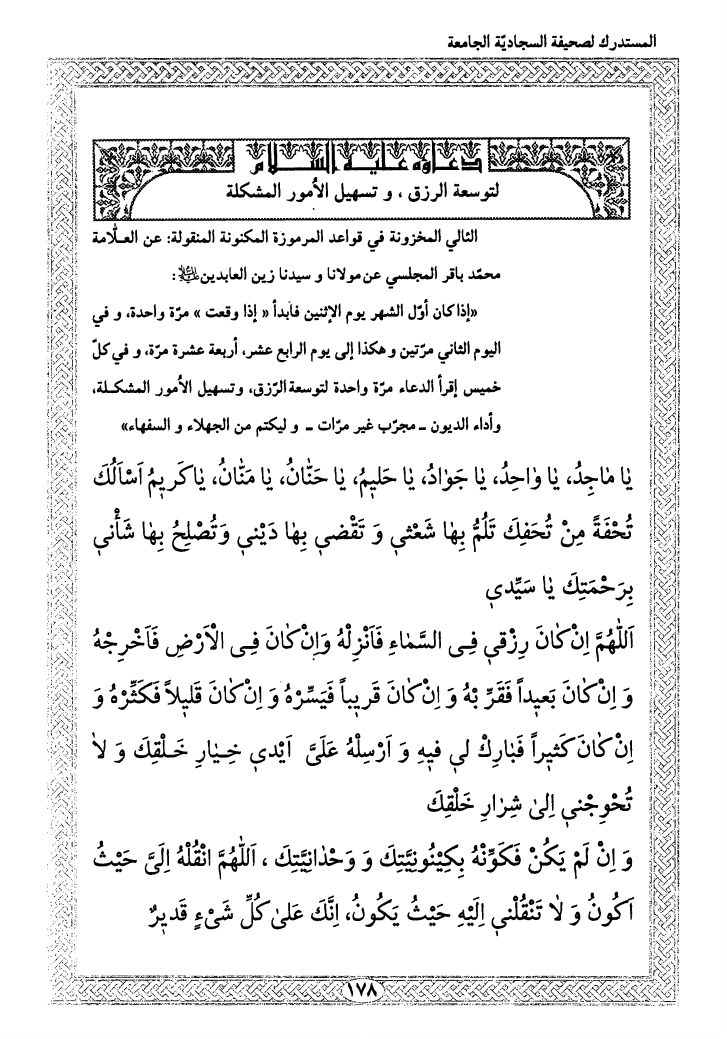 المستدرك لصحيفة السجاديّة الجامعة
دعاؤه عليه السلام
لتوسعة الرزق ، و تسهيل الأمور المشكلة
الثالي المخزونة في قواعد المرموزة المكنونة المنقولة: عن العلّامة
محمّد باقر المجلسي عن مولانا و سيدنا زين العابدين :
«إذا كان أوّل الشهر يوم الإثنين فأبدأ « إذا وقعت » مرّة واحدة، و في
اليوم الثاني مرّتين و هكذا إلى يوم الرابع عشر، أربعة عشرة مرّة، و في كلّ
خميس إقرأ الدعاء مرّة واحدة لتوسعة الرّزق، وتسهيل الأمور المشكـلة،
وأداء الديون ـ مجرّب غير مرّات ـ و ليكتم من الجهلاء و السفهاء»
يٰا مٰاجِدُ، يٰا وٰاحِدُ، يٰا جَوٰادُ، يٰا حَليٖمُ، يٰا حَنّٰانُ، يٰا مَنّٰانُ، يٰا كَريٖمُ اَسْاَلُكَ
تُحْفَةً مِنْ تُحَفِكَ تَلُمُّ بِهٰا شَعْثيٖ وَ تَقْضيٖ بِهٰا دَيْنيٖ وَتُصْلِحُ بِهٰا شَأْنيٖ
بِرَحْمَتِكَ يٰا سَيِّديٖ
اَللّٰهُمَّ اِنْ كٰانَ رِزْقيٖ فِـى السَّمٰاءِ فَاَنْزِلْهُ وَاِنْ كٰانَ فِـى الْاَرْضِ فَاَخْرِجْهُ
وَ اِنْ كٰانَ بَعيٖداً فَقَرِّ بْهُ وَ اِنْ كٰانَ قَريٖباً فَيَسِّرْهُ وَ اِنْ كٰانَ قَليٖلاً فَكَثِّرْهُ وَ
اِنْ كٰانَ كَثيٖراً فَبٰارِكْ ليٖ فيٖهِ وَ اَرْسِلْهُ عَلَىَّ اَيْديٖ خِـيٰارِ خَـلْقِكَ وَ لاٰ
تُحْوِجْنيٖ اِلىٰ شِرٰارِ خَلْقِكَ
وَ اِنْ لَمْ يَكُنْ فَكَوِّنْهُ بِكِيْنُونِيَّتِكَ وَ وَحْدٰانِيَّتِكَ ، اَللّٰهُمَّ انْقُلْهُ اِلَىَّ حَيْثُ
اَكُونُ وَ لاٰ تَنْقُلْنيٖ اِلَيْهِ حَيْثُ يَكُونُ، اِنَّكَ عَلىٰ كُلِّ شَىْءٍ قَديٖرٌ
١٧٨